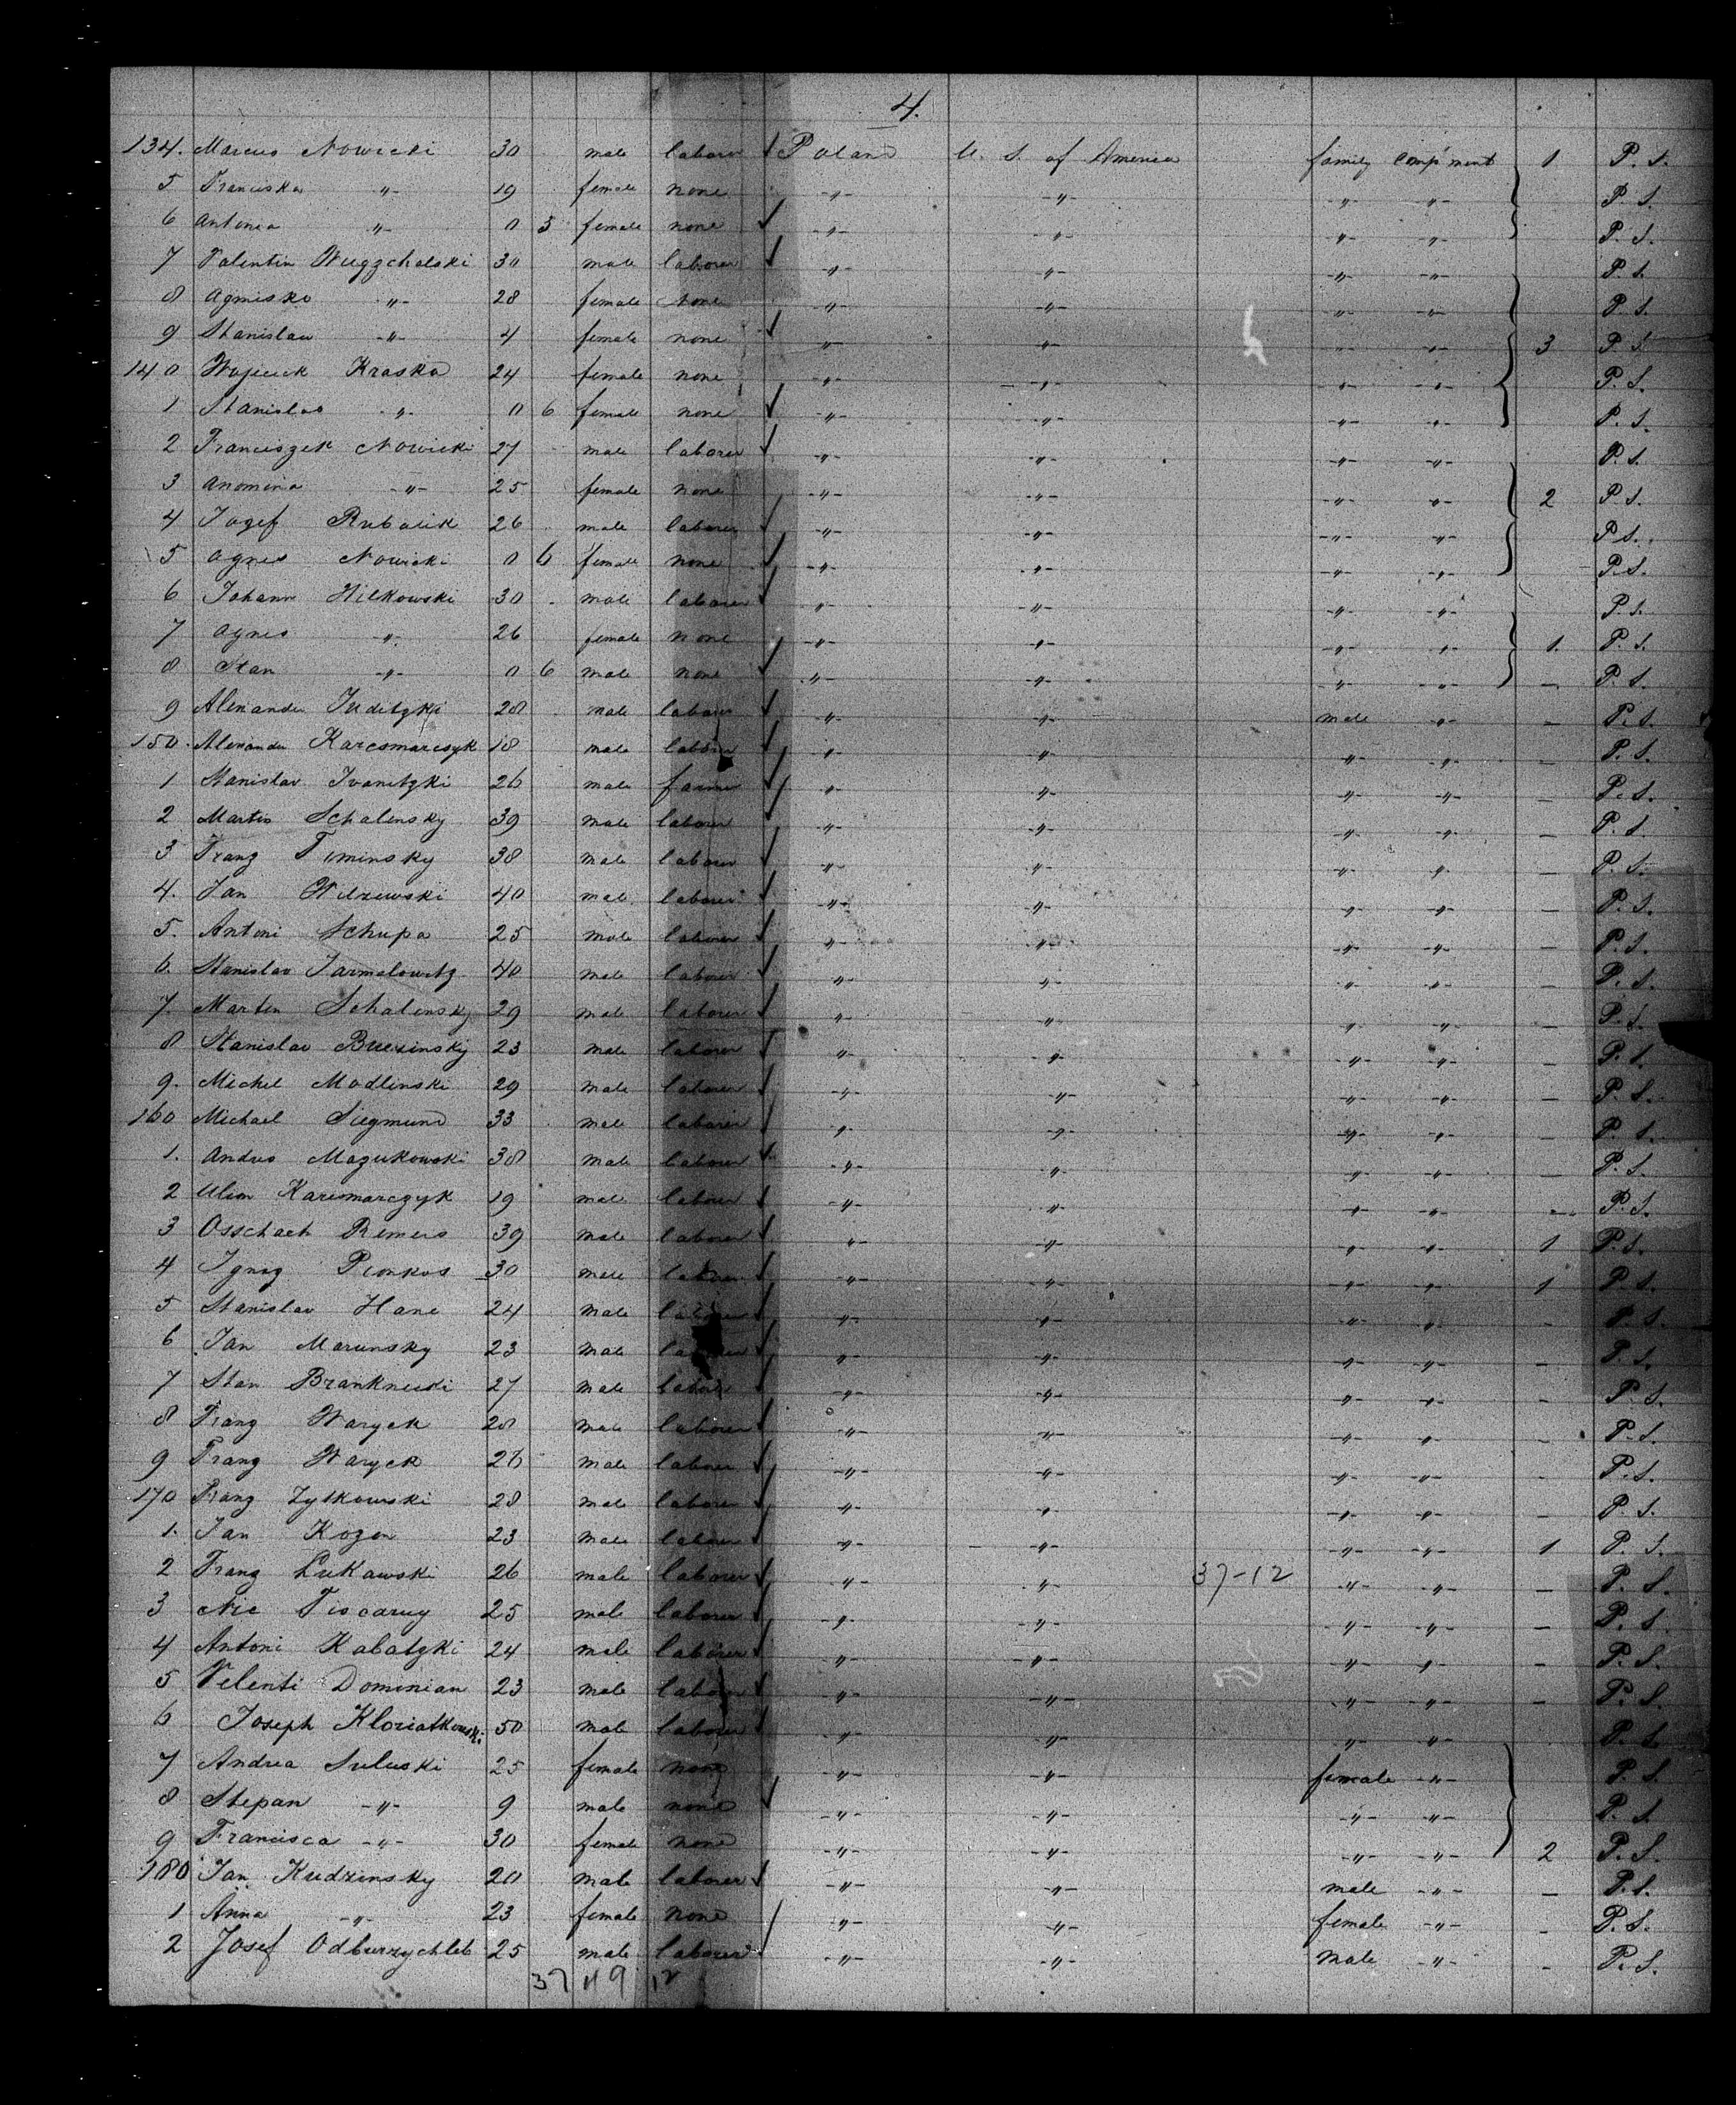 4.
134. Marcus Nowicki 30 male laborer Poland U. S. of America family comp'ment 1 P. S.
5 Franciska -"- 19 female none -"- -"- -"- -"- P. S.
6 Antonia -"- 0 5 female none -"- -"- -"- -"- P. S.
7 Valentin 30 male laborer -"- -"- -"- -"- P. S.
8 Agnisko -"- 28 female none -"- -"- -"- -"- P. S.
9 Stanislaw -"- 4 female none -"- -"- -"- -"- 3 P. S.
140 Kraska 24 female none -"- -"- -"- -"- P. S.
1 Stanislas -"- 0 6 female none -"- -"- -"- -"- P. S.
2 Franciszek Nowicki 27 male laborer -"- -"- -"- -"- P. S.
3 Anomina -"- 25 female none -"- -"- -"- -"- 2 P. S.
4 Jozef 26 male laborer -"- -"- -"- -"- P. S.
5 Agnes Nowicki 0 6 female none -"- -"- -"- -"- P. S.
6 Johann Wilkowski 30 male laborer -"- -"- -"- -"- P. S.
7 Agnes -"- 26 female none -"- -"- -"- -"- 1. P. S.
8 Stan -"- 0 6 male none -"- -"- -"- -"- — P. S.
9 Alexander Juditzki 28 male laborer -"- -"- male -"- — P. S.
150. Alexander Karcsmarcsyk 18 male laborer -"- -"- -"- -"- — P. S.
1 Stanislav Ivanitzki 26 male farmer -"- -"- -"- -"- — P. S.
2 Martin Schalensky 39 male laborer -"- -"- -"- -"- — P. S.
3 Franz Timinsky 38 male laborer -"- -"- -"- -"- — P. S.
4. Jan Wilzewski 40 male laborer -"- -"- -"- -"- — P. S.
5. Antoni Schupa 25 male laborer -"- -"- -"- -"- — P. S.
6. Stanislav Jarmalowitz 40 male laborer -"- -"- -"- -"- — P. S.
7. Martin Schalensky 29 male laborer -"- -"- -"- -"- — P. S.
8 Stanislav 23 male laborer -"- -"- -"- -"- — P. S.
9. Michel Modlinski 29 male laborer -"- -"- -"- -"- — P. S.
160 Michael Siegmund 33 male laborer -"- -"- -"- -"- — P. S.
1. Andres Mazukowski 38 male laborer -"- -"- -"- -"- — P. S.
2 Karcsmarczyk 19 male laborer -"- -"- -"- -"- — P. S.
3 Osschach Remers 39 male laborer -"- -"- -"- -"- 1 P. S.
4 Ignaz Pionkos 30 male laborer -"- -"- -"- -"- 1 P. S.
5 Stanislav Hane 24 male laborer -"- -"- -"- -"- — P. S.
6 Jan Marunsky 23 male laborer -"- -"- -"- -"- — P. S.
7 Stan 27 male laborer -"- -"- -"- -"- — P. S.
8 Franz Waryck 28 male laborer -"- -"- -"- -"- — P. S.
9 Franz Waryck 26 male laborer -"- -"- -"- -"- — P. S.
170 Franz Zylkowski 28 male laborer -"- -"- -"- -"- — P. S.
1. Jan Kozen 23 male laborer -"- -"- -"- -"- 1 P. S.
2 Franz Lukawski 26 male laborer -"- -"- 37-12 -"- -"- — P. S.
3 Nic 25 male laborer -"- -"- -"- -"- — P. S.
4 Antoni Kabatzki 24 male laborer -"- -"- -"- -"- — P. S.
5 Velenti Dominian 23 male laborer -"- -"- -"- -"- — P. S.
6 Joseph Kloziatkowski 50 male laborer -"- -"- -"- -"- P. S.
7 Andrea Suluski 25 female none -"- -"- female -"- P. S.
8 Stepan -"- 9 male none -"- -"- -"- -"- P. S.
9 Francisca -"- 30 female none -"- -"- -"- -"- 2 P. S.
180 Jan Kudzinsky 20 male laborer -"- -"- male -"- — P. S.
1 Anna -"- 23 female none -"- -"- female -"- — P. S.
2 Josef Odburzychleb 25 male laborer -"- -"- male -"- — P. S.
37 49 12